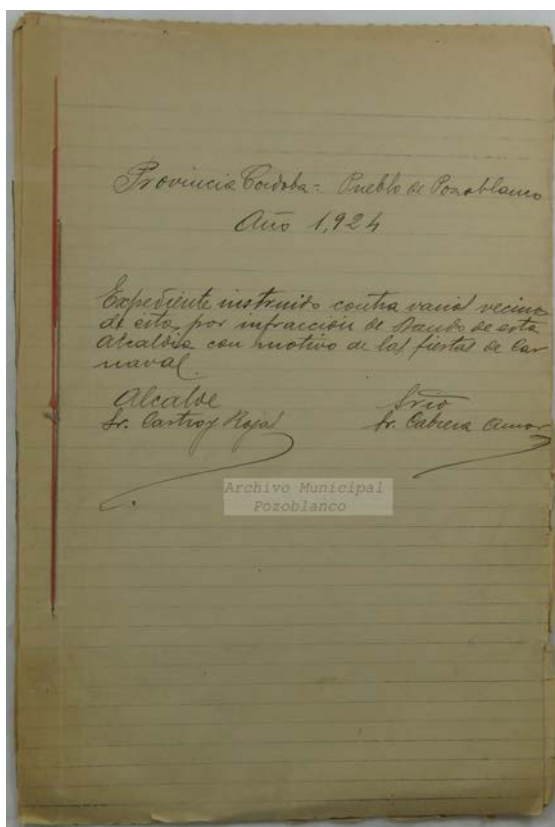 Provincia Córdoba = Pueblo de Pozoblanco
Año 1,924
Expediente instruido contra varios vecinos
de ésta, por infracción de Bando de esta
Alcaldia con motivo de las fiestas de Car
naval.
Alcalde
Sr. Castro y Rojas
Srio
Sr. Cabrera Amor
Archivo Municipal
Pozoblanco